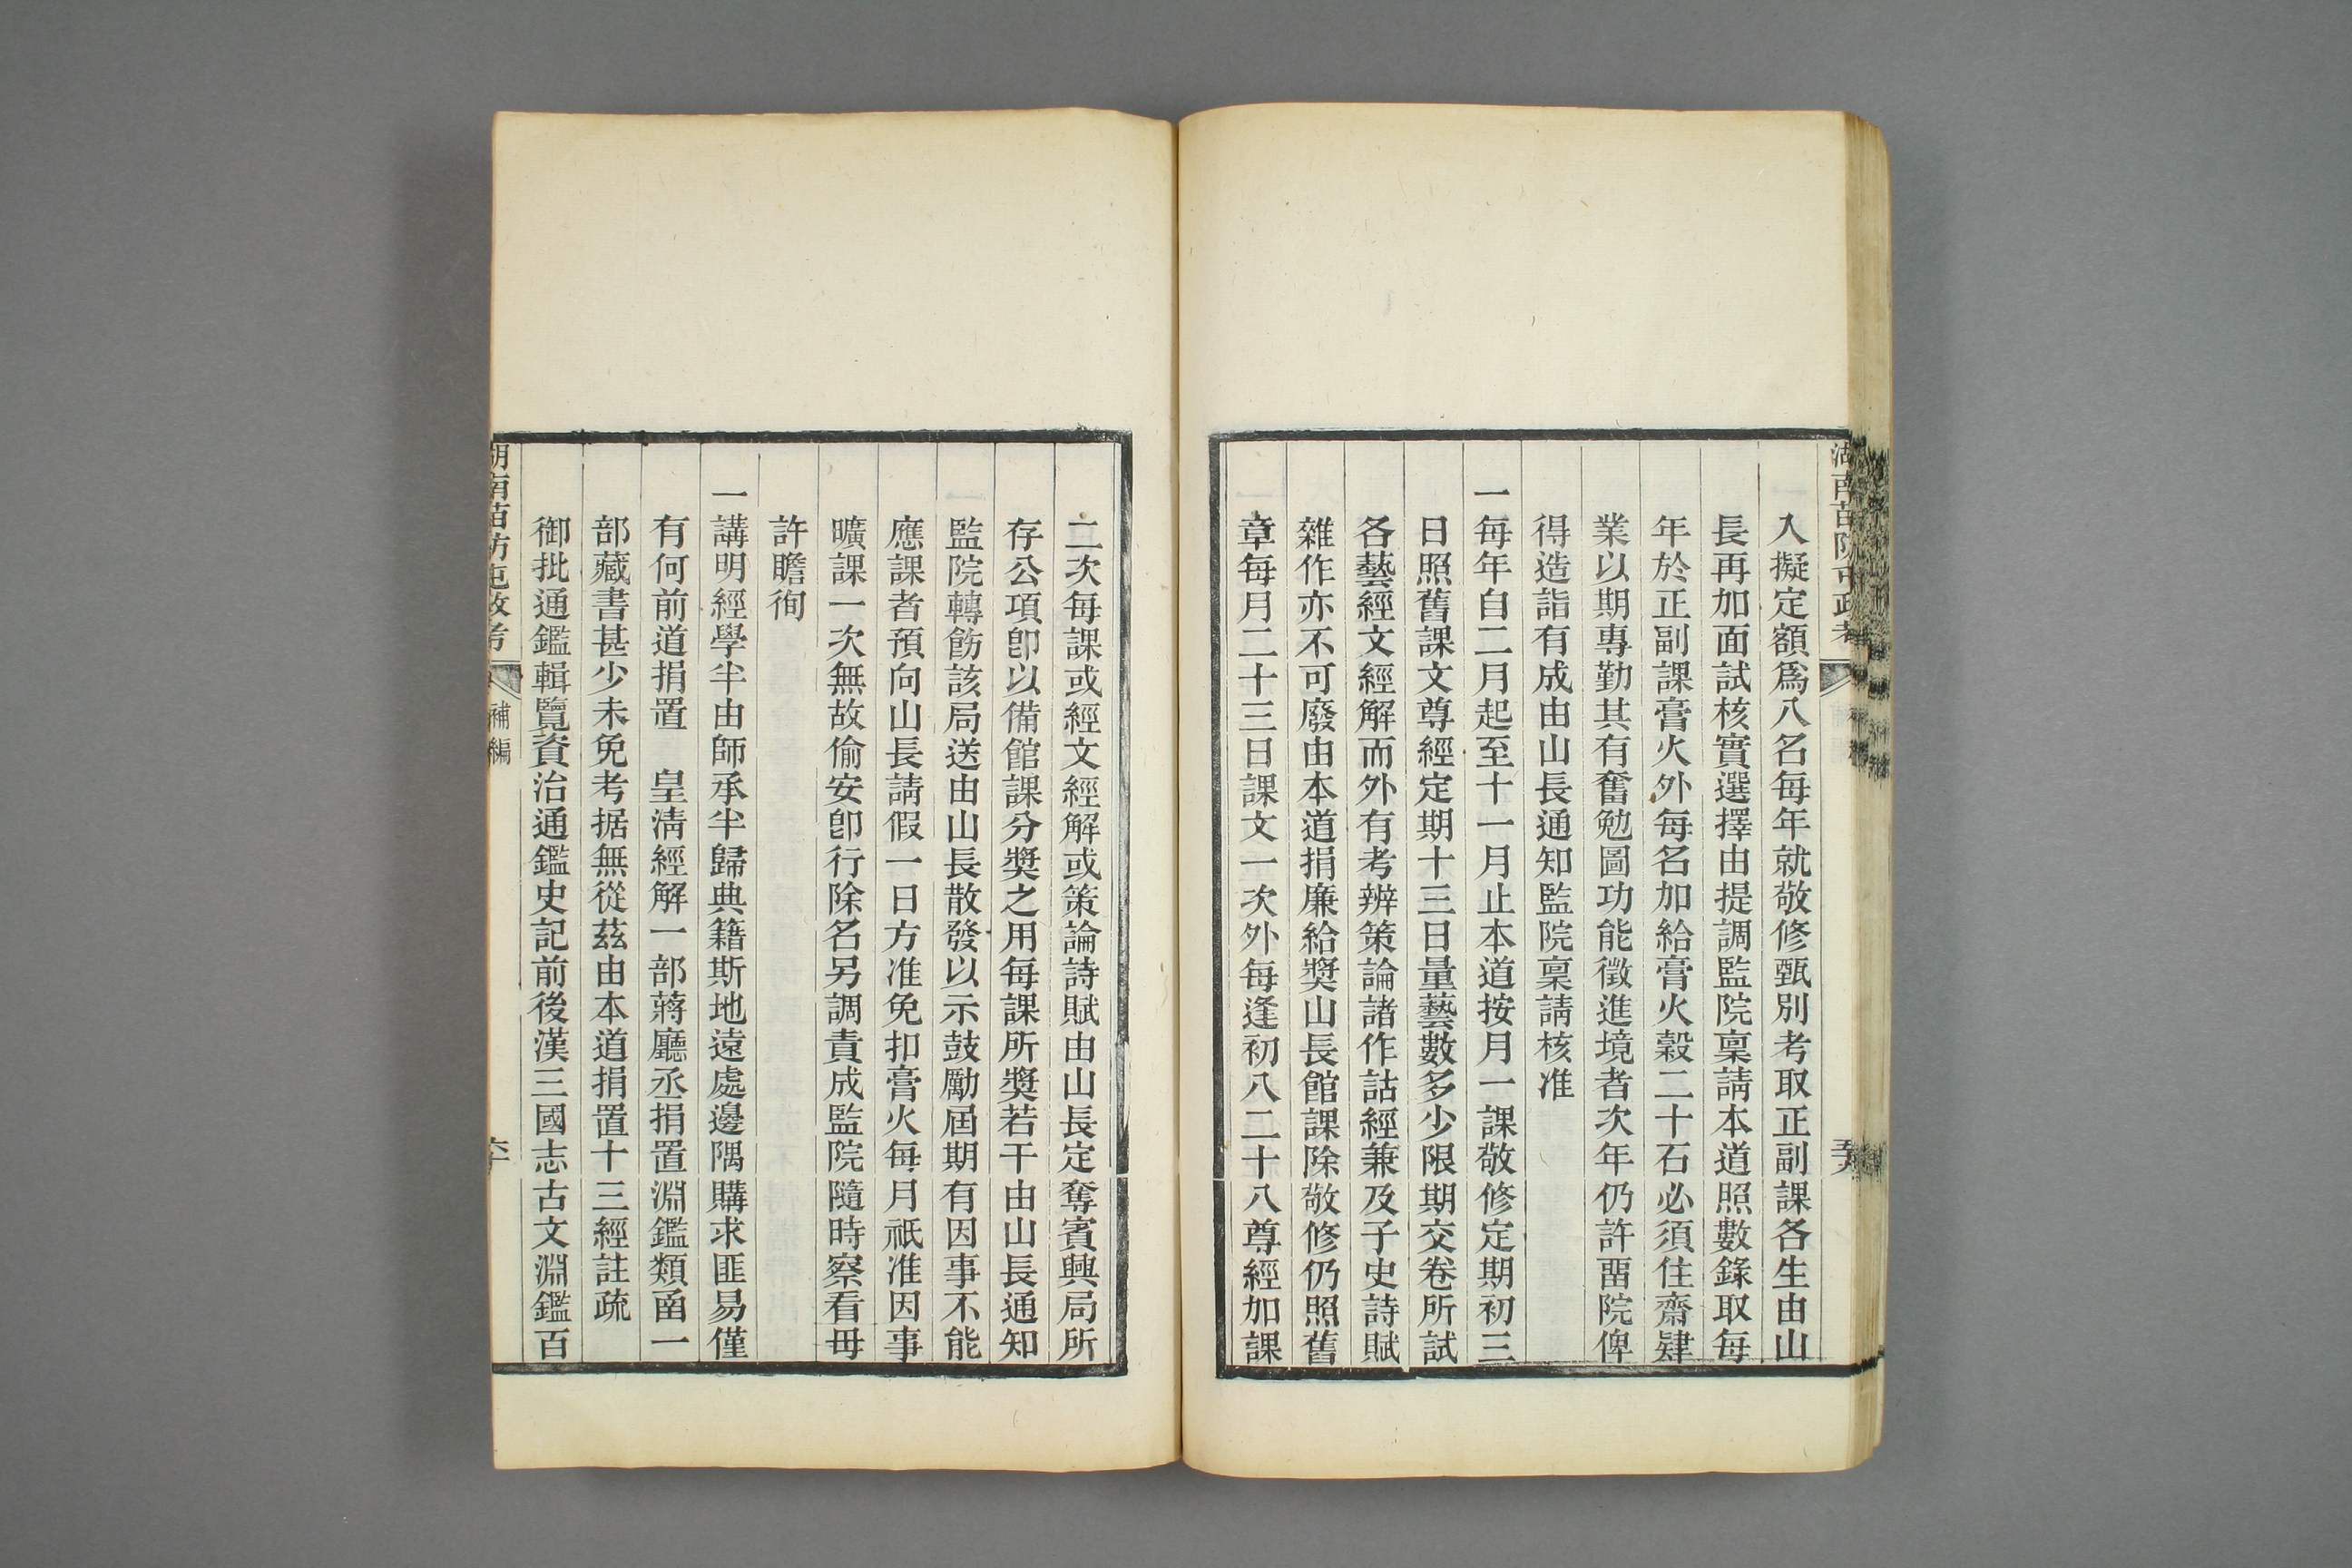 湖南苗防屯政考
五九
入擬定額爲八名每年就敬修甄別考取正副課各生由山
長再加面試核實選擇由提調監院稟請本道照數錄取每
年於正副課膏火外每名加給膏火榖二十石必須住齋肄
業以期專勤其有奮勉圖功能徵進境者次年仍許畱院俾
得造詣有成由山長通知監院稟請核准
一每年自二月起至十一月止本道按月一課敬修定期初三
日照舊課文尊經定期十三日量藝數多少限期交卷所試
各藝經文經解而外有考辨策論諸作詁經兼及子史詩賦
雜作亦不可廢由本道捐廉給獎山長館課除敬修仍照舊
章每月二十三日課文一次外每逢初八二十八尊經加課
二次每課或經文經解或策論詩賦由山長定奪賓興局所
存公項卽以備館課分獎之用每課所獎若干由山長通知
監院轉飭該局送由山長散發以示鼓勵屆期有因事不能
應課者預向山長請假一日方准免扣膏火每月祇准因事
曠課一次無故偷安卽行除名另調責成監院隨時察看毋
許瞻徇
一講明經學半由師承半歸典籍斯地遠處邊隅購求匪易僅
有何前道捐置　皇淸經解一部蔣廳丞捐置淵鑑類函一
部藏書甚少未免考据無從茲由本道捐置十三經註疏
御批通鑑輯覽資治通鑑史記前後漢三國志古文淵鑑百
湖南苗防屯政考
補編
六十